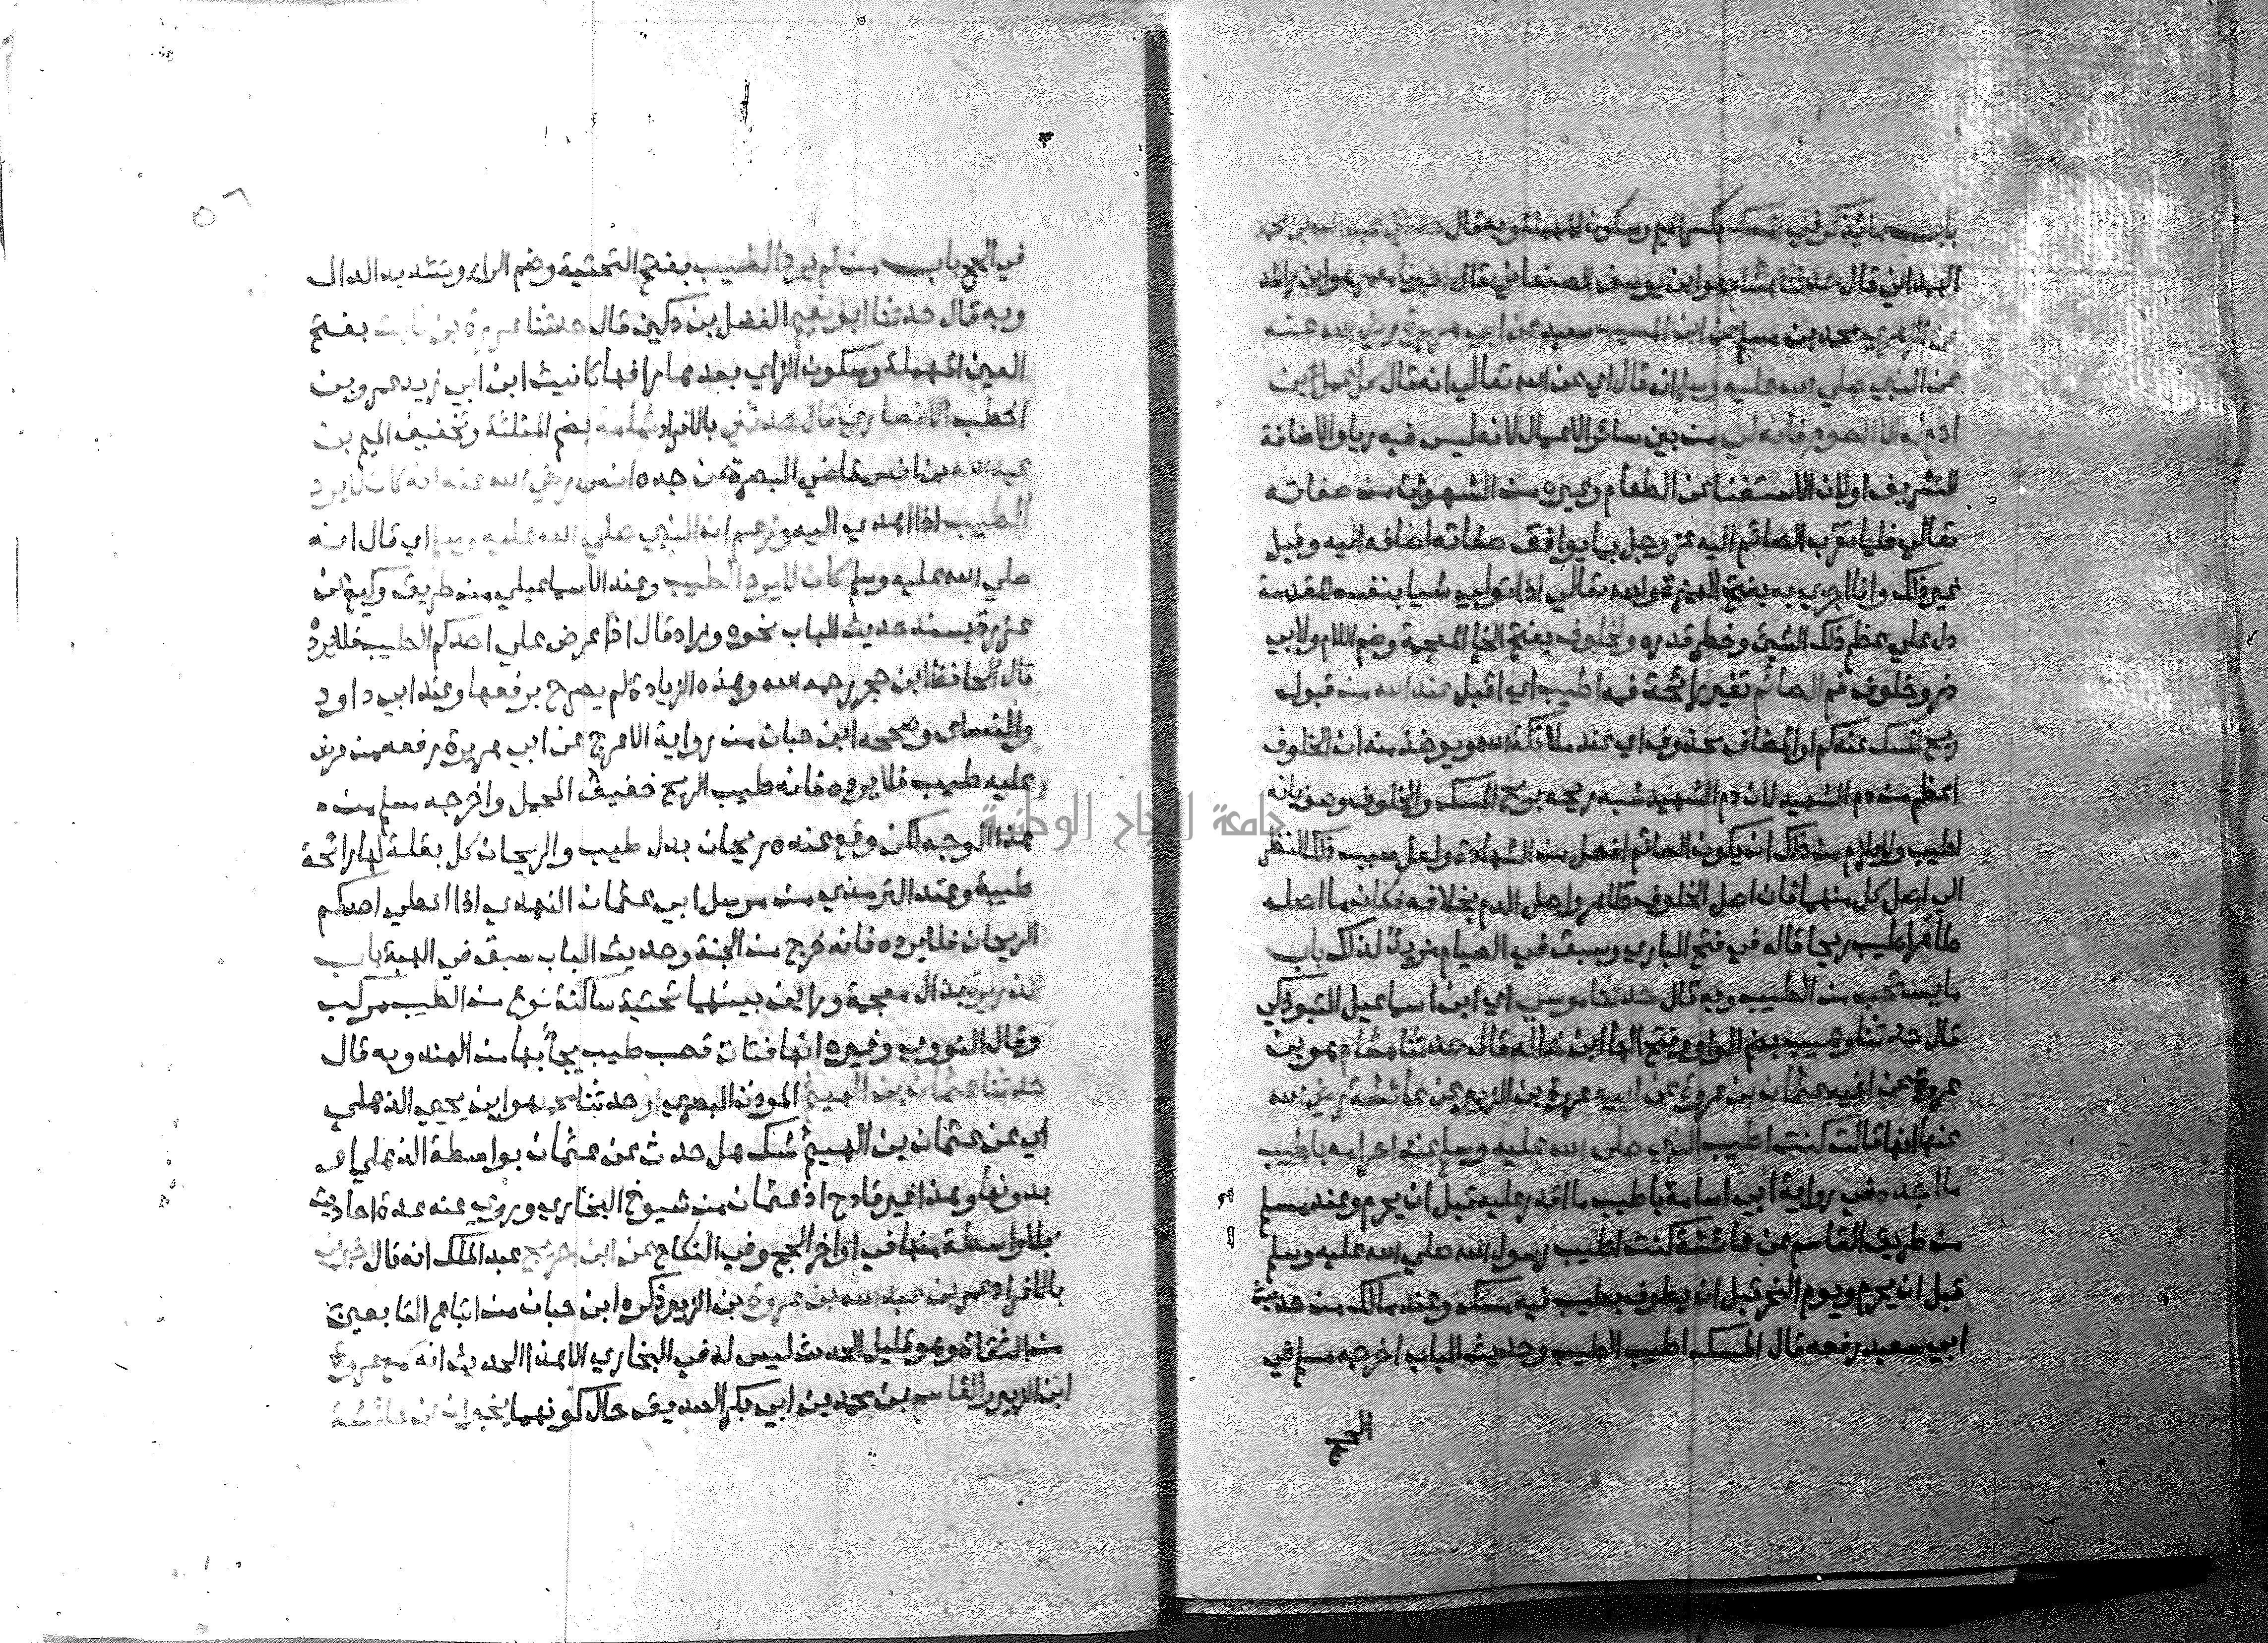 باب ما يذكر في المسك بكسر الميم وسكون المهملة وبه قال حدثني عبد الله بن محمد
الهمداني قال حدثنا هشام هو ابن يوسف الصنعاني قال اخبرنا معمر هو ابن راشد
عن الزهري محمد بن مسلم عن ابن المسيب سعيد عن ابي هريرة رضي الله عنه
عن النبي صلي الله عليه وسلم انه قال اي عن الله تعالي انه قال كل عمل ابن
ادم له الا الصوم فانه لي من بين سائر الاعمال لانه ليس فيه ريا والاضافة
للتشريف اولان الاستغنا عن الطعام وغيره من الشهوات من صفاته
تعالي فلما تقرب الصائم اليه عز وجل بما يوافق صفاته اضافه اليه وقيل
غير ذلك وانا اجزي به بفتح الهمزة والله تعالي اذا تولي شيا بنفسه المقدسة
دل علي عظم ذلك الشيئ وخطر قدره ولخلوف بفتح الخا المعجمة وضم اللام ولابي
ذر وخلوف فم الصائم تغير رائحة فمه اطيب اي اقبل عند الله من قبول
ريح المسك عندكم او المضاف محذوف اي عند ملائكة الله ويوخذ منه ان الخلوف
اعظم من دم الشهيد لان دم الشهيد شبه ريحه بريح المسك والخلوف وصف بانه
اطيب ولا يلزم من ذلك ان يكون الصائم افضل من الشهادة ولعل سبب ذلك النظر
الي اصل كل منهما فان اصل الخلوف طاهر واصل الدم بخلافه فكان ما اصله
طاهرا اطيب ريحا قاله في فتح الباري وسبق في الصيام مزيد لذلك باب
ما يستحب من الطيب وبه قال حدثنا موسي اي ابن اسماعيل التبوذكي
قال حدثنا وهيب بضم الواو وفتح الها ابن خالد قال حدثنا هشام هو بن
عروة عن اخيه عثمان بن عروة عن ابيه عروة بن الزبير عن عائشة رضي الله
عنها انها قالت كنت اطيب النبي صلي الله عليه وسلم عند احرامه باطيب
ما اجد وفي رواية ابي اسامة باطيب ما اقدر عليه قبل ان يحرم وعند مسلم
من طريق القاسم عن عائشة كنت اطيب رسول الله صلي الله عليه وسلم
قبل ان يحرم ويوم النحر قبل ان يطوف بطيب فيه مسك وعند مالك من حديث
ابي سعيد رفعه قال المسك اطيب الطيب وحديث الباب اخرجه مسلم في
الحج
٥٦
في الحج باب من لم يرد الطيب بفتح التحتية وضم الراء وتشديد الدال
وبه قال حدثنا ابو نعيم الفضل بن دكين قال حدثنا عزرة بن ثابت بفتح
العين المهملة وسكون الزاي بعدها را فها تانيث ابن ابي زيد عمرو بن
اخطب الانصاري قال حدثني بالافراد ثمامة بضم المثلثة وتخفيف الميم بن
عبد الله بن انس قاضي البصرة عن جده انس رضي الله عنه انه كان لا يرد
الطيب اذا اهدي اليه وزعم ان النبي صلي الله عليه وسلم اي قال انه
صلي الله عليه وسلم كان لا يرد الطيب وعند الاسماعيلي من طريق وكيع عن
عزرة بسند حديث الباب نحوه وزاد قال اذا عرض علي احدكم الطيب فلا يرده
قال الحافظ ابن حجر رحمه الله وهذه الزيادة لم يصرح برفعها وعند ابي داود
والنساي وصححه ابن حبان من رواية الاعرج عن ابي هريرة رفعه من عرض
عليه طيب فلا يرده فانه طيب الريح خفيف المحمل واخرجه مسلم من
هذا الوجه لكن وقع عنده ريحان بدل طيب والريحان كل بقلة لها رائحة
طيبة وعند الترمذي من مرسل ابي عثمان النهدي اذا اعطي احدكم
الريحان فلا يرده فانه خرج من الجنة وحديث الباب سبق في الهبة باب
الذريرة بذال معجمة وراين بينهما تحتية ساكنة نوع من الطيب مركب
وقال النووي وغيره انها فتات قصب طيب يجا بها من الهند وبه قال
حدثنا عثمان بن الهيثم الموذن البصري او حدثنا محمد هو ابن يحيي الذهلي
اي عن عثمان بن الهيثم شك هل حدث عن عثمان بواسطة الذهلي او
بدونها وهذا غير قادح اذ عثمان من شيوخ البخاري وروي عنه عدة احاديث
بلا واسطة منها في اواخر الحج وفي النكاح عن ابن جريج عبد الملك انه قال اخبرني
بالافراد عمر بن عبد الله بن عروة بن الزبير ذكره ابن حبان من اتباع التابعين
من الثقاة وهو قليل الحديث ليس له في البخاري الا هذا الحديث انه سمع عروة
ابن الزبير والقاسم بن محمد بن ابي بكر الصديق حال كونهما يخبران عن عائشة
جامعة النجاح الوطنية